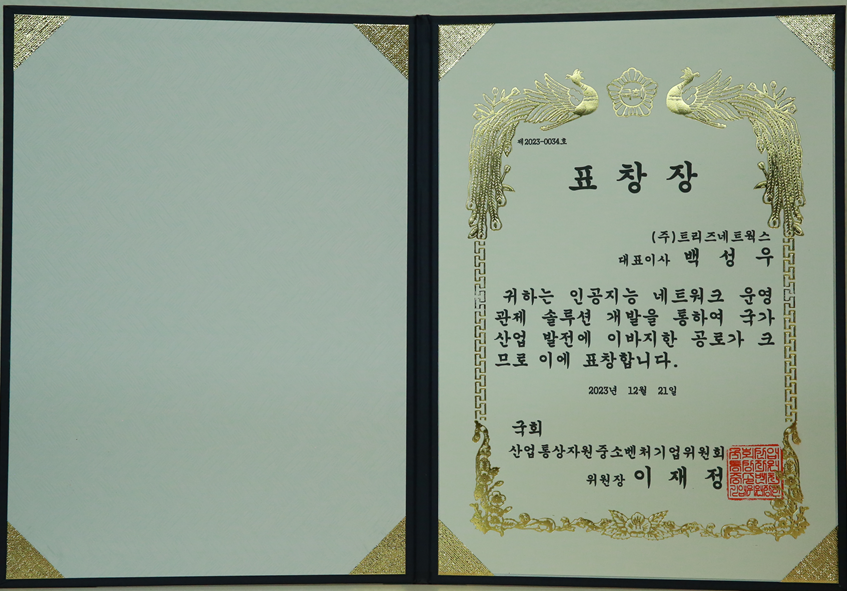 제2023-0034호
표창장
(주)트리즈네트웍스
대표이사 백성우
귀하는 인공지능 네트워크 운영
관제 솔루션 개발을 통하여 국가
산업 발전에 이바지한 공로가 크
므로 이에 표창합니다.
2023년 12월 21일
국회
산업통상자원중소벤처기업위원회
위원장 이재정